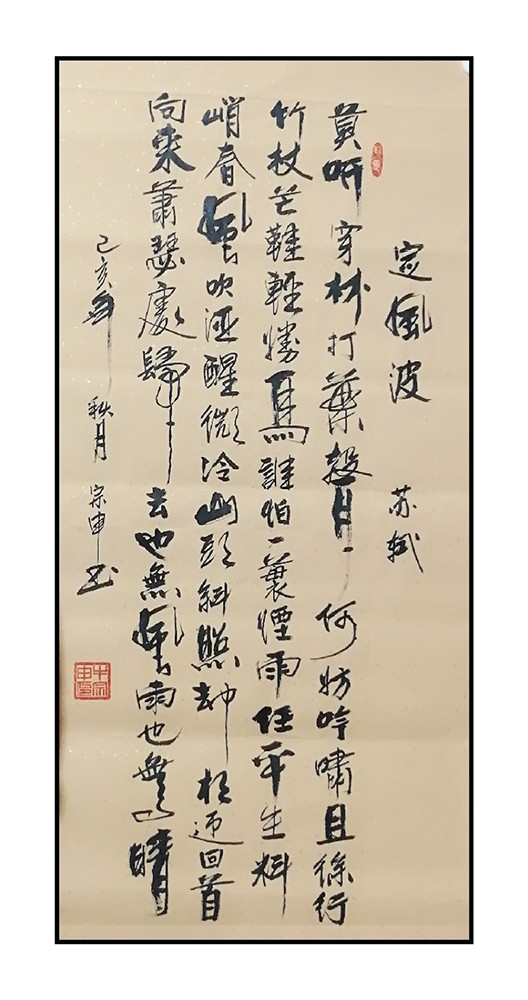 定風波 苏轼
莫听穿林打葉聲何妨吟嘯且徐行
竹杖芒鞋輕勝馬誰怕一蓑煙雨任平生料
峭春風吹酒醒微冷山頭斜照却相迎回首
向來蕭瑟處歸去也無風雨也無晴
己亥年秋月宗申书